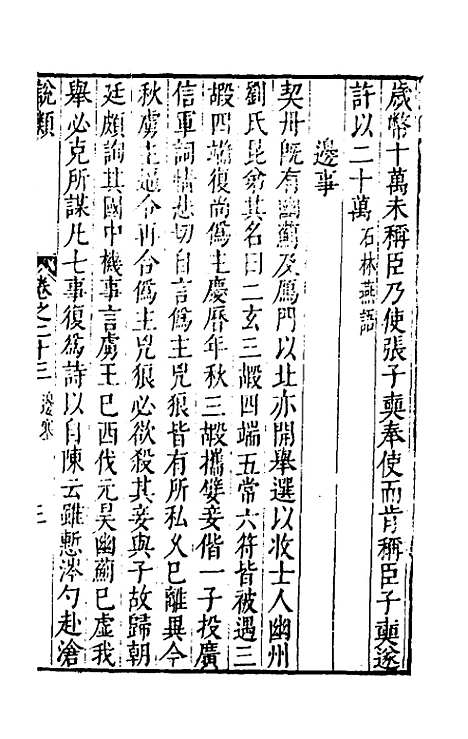 歲幣十萬未稱臣乃使張子奭奉使而肯稱臣子奭遂
許以二十萬石林燕語
邊事
契丹旣有幽薊及鴈門以北亦開舉選以收士人幽州
劉氏昆弟其名曰二玄三嘏四端五常六符皆被遇三
嘏四端復尚僞主慶曆年秋三嘏攜嬖妾偕一子投廣
信軍詞情悲切自言僞主兇狠皆有所私乂已離異今
秋虜主逼令再合僞主兇狠必欲殺其妾與子故歸朝
廷頗詢其國中機事言虜王已西伐元昊幽薊已虛我
舉必克所謀凡七事復爲詩以自陳云雖慙涔勺赴滄
說類 卷之二十三 邊塞 三